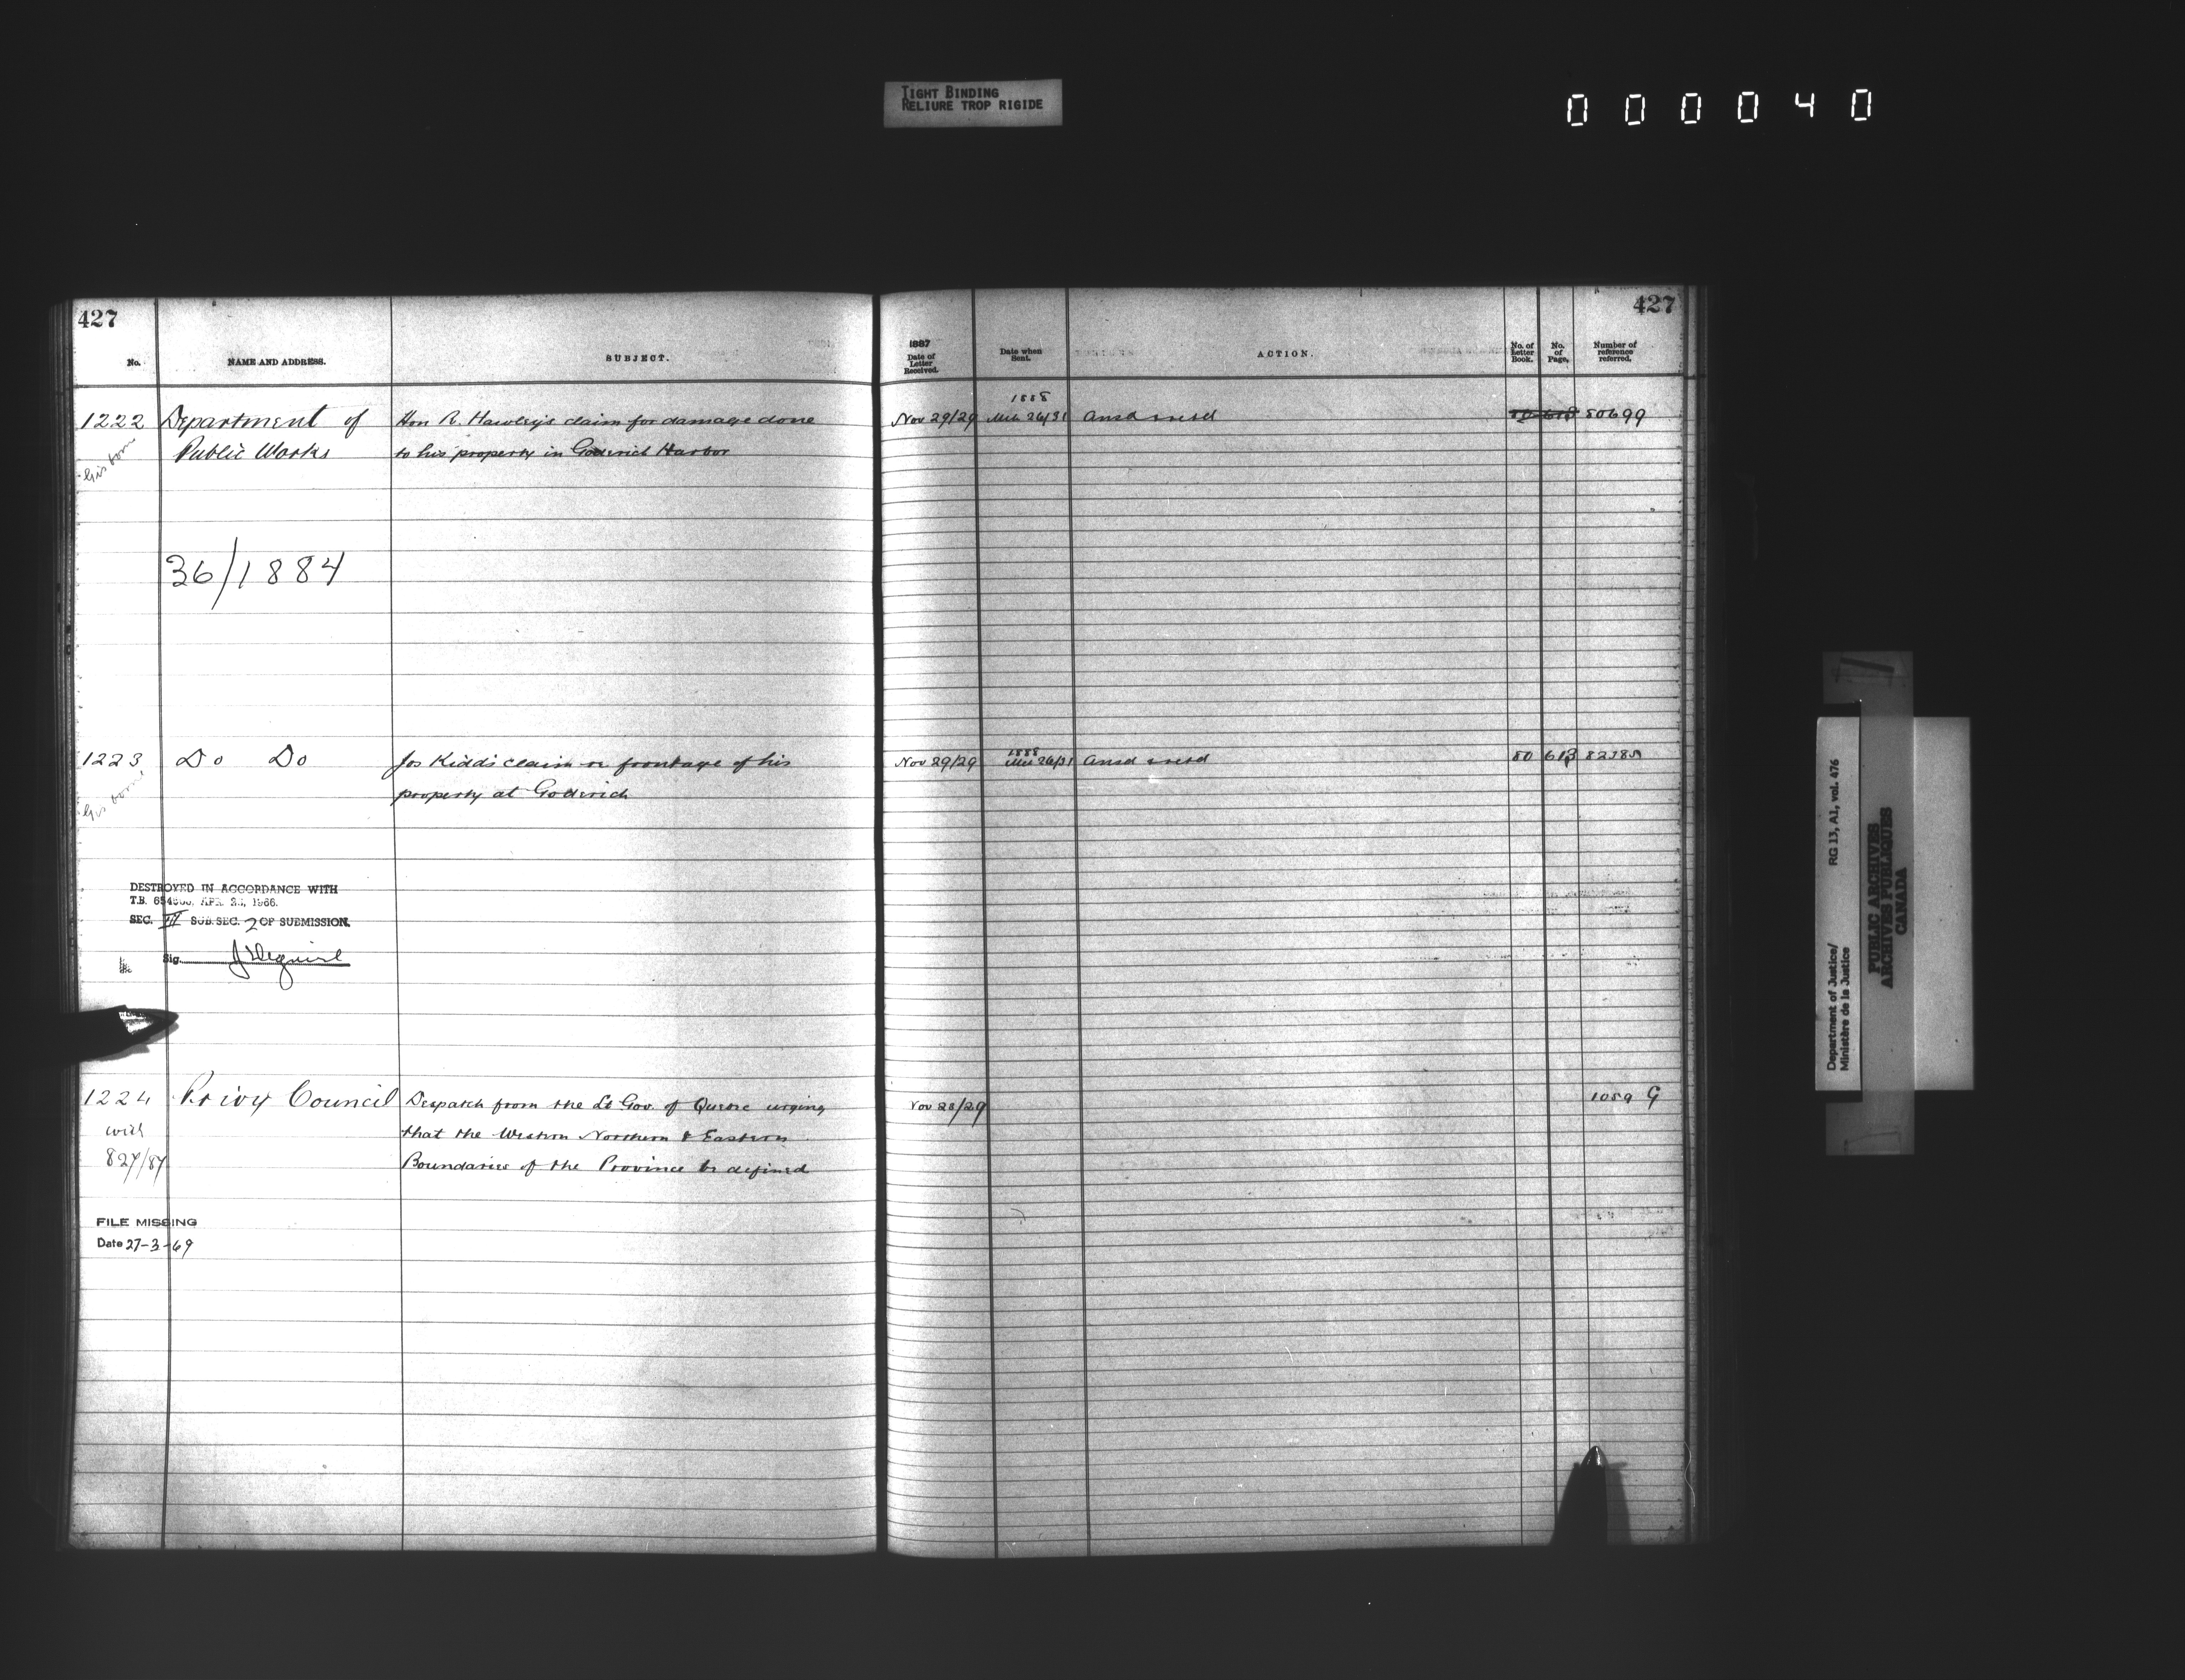 TIGHT BINDING
RELIURE TROP RIGIDE
000040
427
427
No.
NAME AND ADDRESS.
SUBJECT.
1887
Date of
Letter
Received.
Date when
Sent.
ACTION.
No. of
Letter
Book.
No.
of
Page.
Number of
reference
referred.
1222 Department of
Public Works
Hon R. Hawley's claim for damage done
to his property in Goderich Harbor
Nov 29/29
1888
Mch 26/31
Ansd
80 613 80699
36/1884
1223 Do Do
Jos Kidd's claim re frontage of his
property at Goderich
Nov 29/29
1888
Mch 26/31
Ansd
80 613
DESTROYED IN ACCORDANCE WITH
T.B. APR. 1966.
SEC. III SUB. SEC. 2 OF SUBMISSION.
Sig.
1224 Privy Council
with
827/87
Despatch from the Lt Gov. of Quebec urging
that the Western Northern & Eastern
Boundaries of the Province be defined
Nov 28/29
1059 G
FILE MISSING
Date 27-3-69
Department of Justice/ RG 13, A1, vol. 476
Ministère de la Justice
PUBLIC ARCHIVES
ARCHIVES PUBLIQUES
CANADA